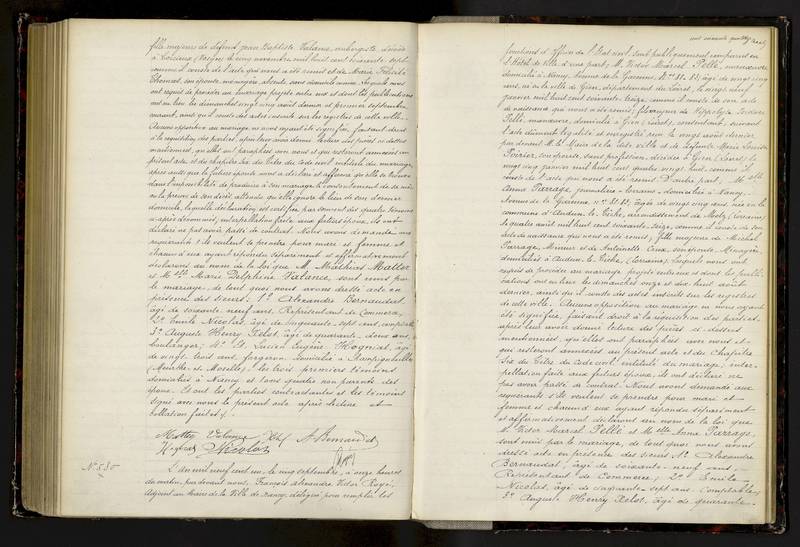 fille majeure de défunt Jean Baptiste Valance, aubergiste, décédé
à (Vosges) le cinq novembre mil huit cent soixante sept
comme il conste de l'acte qui nous a été remis et de Marie
Thomas, son épouse, ménagère, absente, sans domicile connu. Lesquels nous
ont requis de procéder au mariage projeté entre eux et dont les publications
ont eu lieu les dimanches vingt cinq août dernier et premier septembre
courant, ainsi qu'il conste des actes inscrits sur les registres de cette ville.
Aucune opposition au mariage ne nous ayant été signifiée, faisant droit
à la réquisition des parties, après leur avoir donné lecture des pièces ci-dessus
mentionnées, qu'elles ont paraphées avec nous et qui resteront annexées au
présent acte, et du chapitre Six du Titre du Code civil intitulé du mariage,
après aussi que la future épouse nous a déclaré et affirmé qu'elle se trouve
dans l'impossibilité de produire à son mariage le consentement de sa mère
ou la preuve de son décès, attendu qu'elle ignore le lieu de son dernier
domicile, laquelle déclaration est certifiée par serment des quatre témoins
ci-après dénommés, interpellation faite aux futurs époux, ils ont
déclaré ne pas avoir passé de contrat. Nous avons demandé aux
requérants s'ils veulent se prendre pour mari et femme et
chacun d'eux ayant répondu séparément et affirmativement
déclarons au nom de la loi que M. Mathias Matter
et Mlle Marie Delphine Valance, sont unis par
le mariage, de tout quoi nous avons dressé acte en
présence des sieurs: 1° Alexandre Bernaudat,
âgé de soixante-neuf ans, Représentant de Commerce,
2° Emile Nicolas, âgé de cinquante-sept ans, comptable,
3° Auguste Henry Xelot, âgé de quarante-deux ans,
boulanger; 4° et Lucien Eugène Hognias, âgé
de vingt-trois ans, forgeron, domicilié à
(Meurthe-et-Moselle), les trois premiers témoins
domiciliés à Nancy et tous quatre non parents des
époux. Et ont les parties contractantes et les témoins
signé avec nous le présent acte après lecture et
collation faites /.
Matter Valance Xelot A. Bernaudat
Hognias Nicolas
N° 580
L'an mil neuf cent un, le cinq septembre, à onze heures
du matin, par devant nous, François Alexandre Victor
Adjoint au Maire de la Ville de Nancy, délégué pour remplir les
cent soixante
fonctions d'Officier de l'Etat civil, sont publiquement comparus en
l'Hôtel de Ville, d'une part, M. Victor Marcel Pellé, manœuvre
domicilié à Nancy, Avenue de la Garenne, N° 81-83, âgé de vingt cinq
ans, né en la ville de Gien, département du Loiret, le vingt neuf
janvier mil huit cent soixante-seize, comme il conste de son acte
de naissance qui nous a été remis; fils majeur de Hippolyte Isidore
Pellé, manœuvre, domicilié à Gien (Loiret), consentant, suivant
acte dûment légalisé et enregistré reçu le vingt août dernier
par devant M. le Maire de la dite ville et de défunte Marie Louise
Poirier, son épouse, sans profession, décédée à Gien (Loiret), le
vingt cinq janvier mil huit cent quatre vingt huit, comme il
conste de l'acte qui nous a été remis. D'autre part, Mlle
Anna Parrage, journalière, lorraine, domiciliée à Nancy,
Avenue de la Garenne, n° 81-83, âgée de vingt cinq ans, née en la
commune d'Audun-le-Tiche, arrondissement de Metz (Lorraine),
le quatre août mil huit cent soixante-seize, comme il conste de son
acte de naissance qui nous a été remis, fille majeure de Michel
Parrage, Mineur et de Antoinette son épouse, Ménagère,
domiciliés à Audun-le-Tiche, (Lorraine). Lesquels nous ont
requis de procéder au mariage projeté entre eux et dont les publi-
cations ont eu lieu les dimanches onze et dix-huit août
dernier, ainsi qu'il conste des actes inscrits sur les registres
de cette ville. Aucune opposition au mariage ne nous ayant
été signifiée, faisant droit à la réquisition des parties,
après leur avoir donné lecture des pièces ci-dessus
mentionnées, qu'elles ont paraphées avec nous et
qui resteront annexées au présent acte et du Chapitre
Six du Titre du Code civil intitulé du mariage, inter-
pellation faite aux futurs époux, ils ont déclaré ne
pas avoir passé de contrat. Nous avons demandé aux
requérants s'ils veulent se prendre pour mari et
femme et chacun d'eux ayant répondu séparément
et affirmativement déclarons au nom de la loi que
M. Victor Marcel Pellé et Mlle Anna Parrage,
sont unis par le mariage, de tout quoi nous avons
dressé acte en présence des sieurs 1° Alexandre
Bernaudat, âgé de soixante-neuf ans,
Représentant de Commerce; 2° Emile
Nicolas, âgé de cinquante-sept ans, Comptable;
3° Auguste Henry Xelot, âgé de quarante-